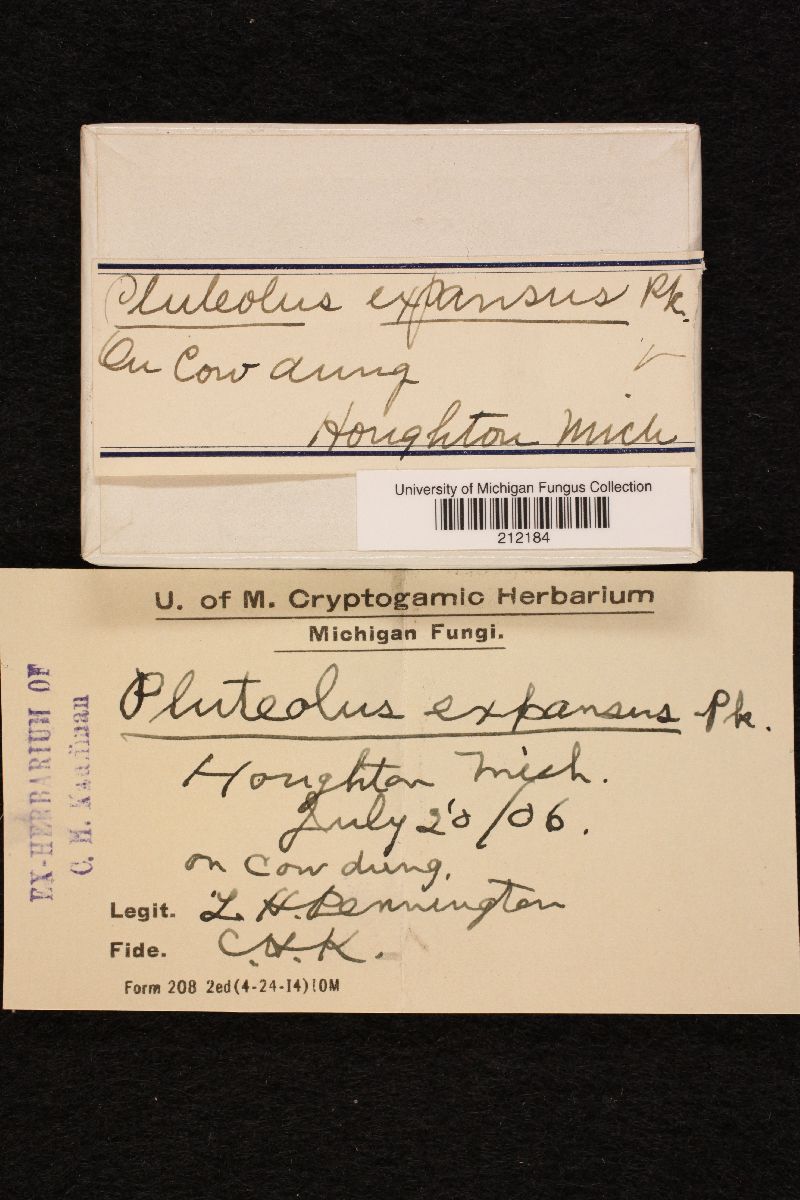 Pluteolus expansus Pk.
On Cow dung
Houghton Mich
University of Michigan Fungus Collection
212184
U. of M. Cryptogamic Herbarium
Michigan Fungi.
Pluteolus expansus Pk.
Houghton Mich.
July 20/06.
on cow dung.
Legit. L. H. Pennington
Fide. C.H.K.
Form 208 2ed(4-24-14)10M
EX-HERBARIUM OF
C. H. Kauffman